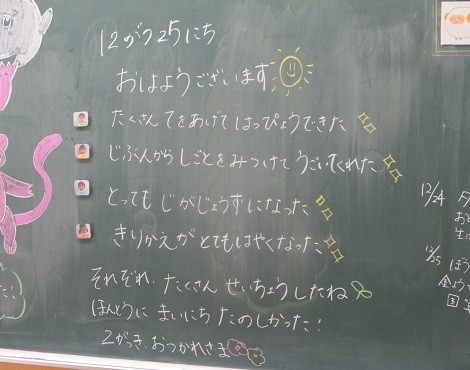 12がつ25にち
おはようございます
たくさん てをあげて はっぴょうできた
じぶんから しごとをみつけて うごいてくれた
とっても じがじょうずになった
きりかえが とてもはやくなった
それぞれ、たくさん せいちょうしたね
ほんとうに まいにち たのしかった!
2がっき、おつかれさま
12/24
12/25 ぼう
金よう
国